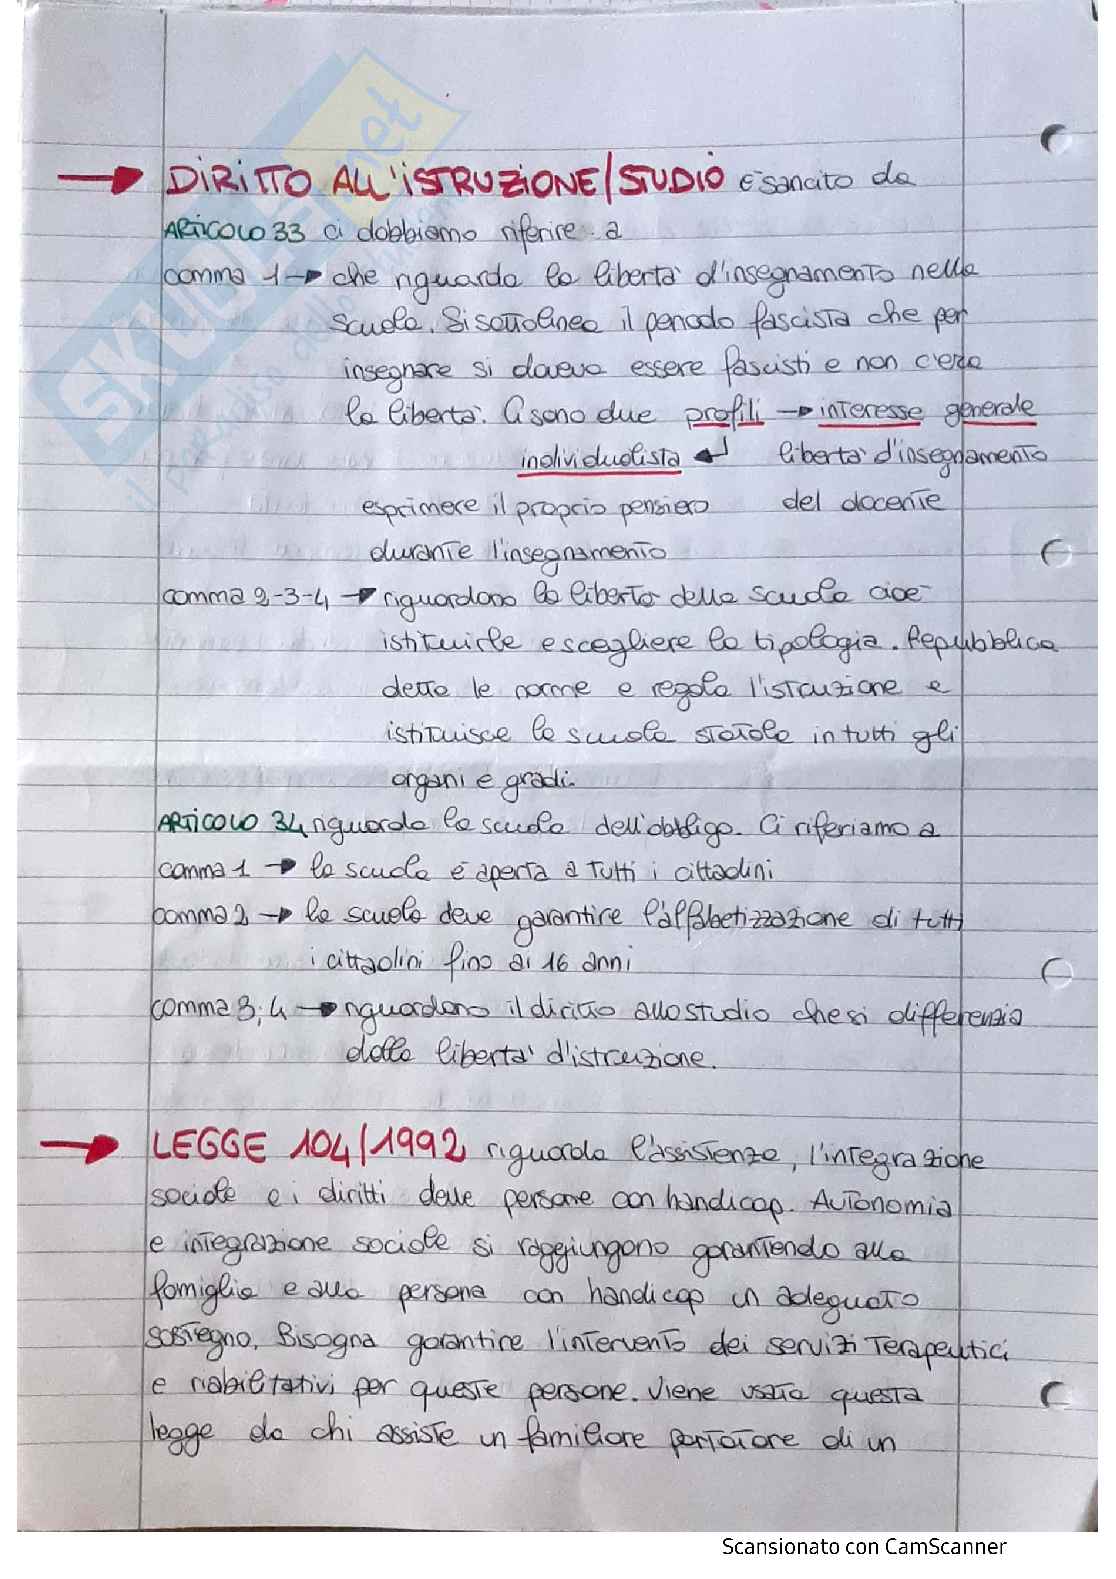 → DIRITTO ALL'ISTRUZIONE/STUDIO è sancito da
ARTICOLO 33 ci dobbiamo riferire a
comma 1 → che riguarda la libertà d'insegnamento nella
scuola. Si sottolinea il periodo fascista che per
insegnare si doveva essere fascisti e non c'era
la libertà. Ci sono due profili → interesse generale
individualista ↵ libertà d'insegnamento
esprimere il proprio pensiero del docente
durante l'insegnamento
comma 2-3-4 → riguardano la libertà della scuola cioè
istituirle e scegliere la tipologia. Repubblica
detta le norme e regola l'istruzione e
istituisce la scuola statale in tutti gli
organi e gradi.
ARTICOLO 34 riguarda la scuola dell'obbligo. Ci riferiamo a
comma 1 → la scuola è aperta a tutti i cittadini
comma 2 → la scuola deve garantire l'alfabetizzazione di tutti
i cittadini fino ai 16 anni
comma 3; 4 → riguardano il diritto allo studio che si differenzia
dalla libertà d'istruzione.
→ LEGGE 104/1992 riguarda l'assistenza, l'integrazione
sociale e i diritti delle persone con handicap. Autonomia
e integrazione sociale si raggiungono garantendo alla
famiglia e alla persona con handicap un adeguato
sostegno. Bisogna garantire l'intervento dei servizi terapeutici
e riabilitativi per queste persone. Viene usata questa
legge da chi assiste un familiare portatore di un
Scansionato con CamScanner
SKUOLA.net